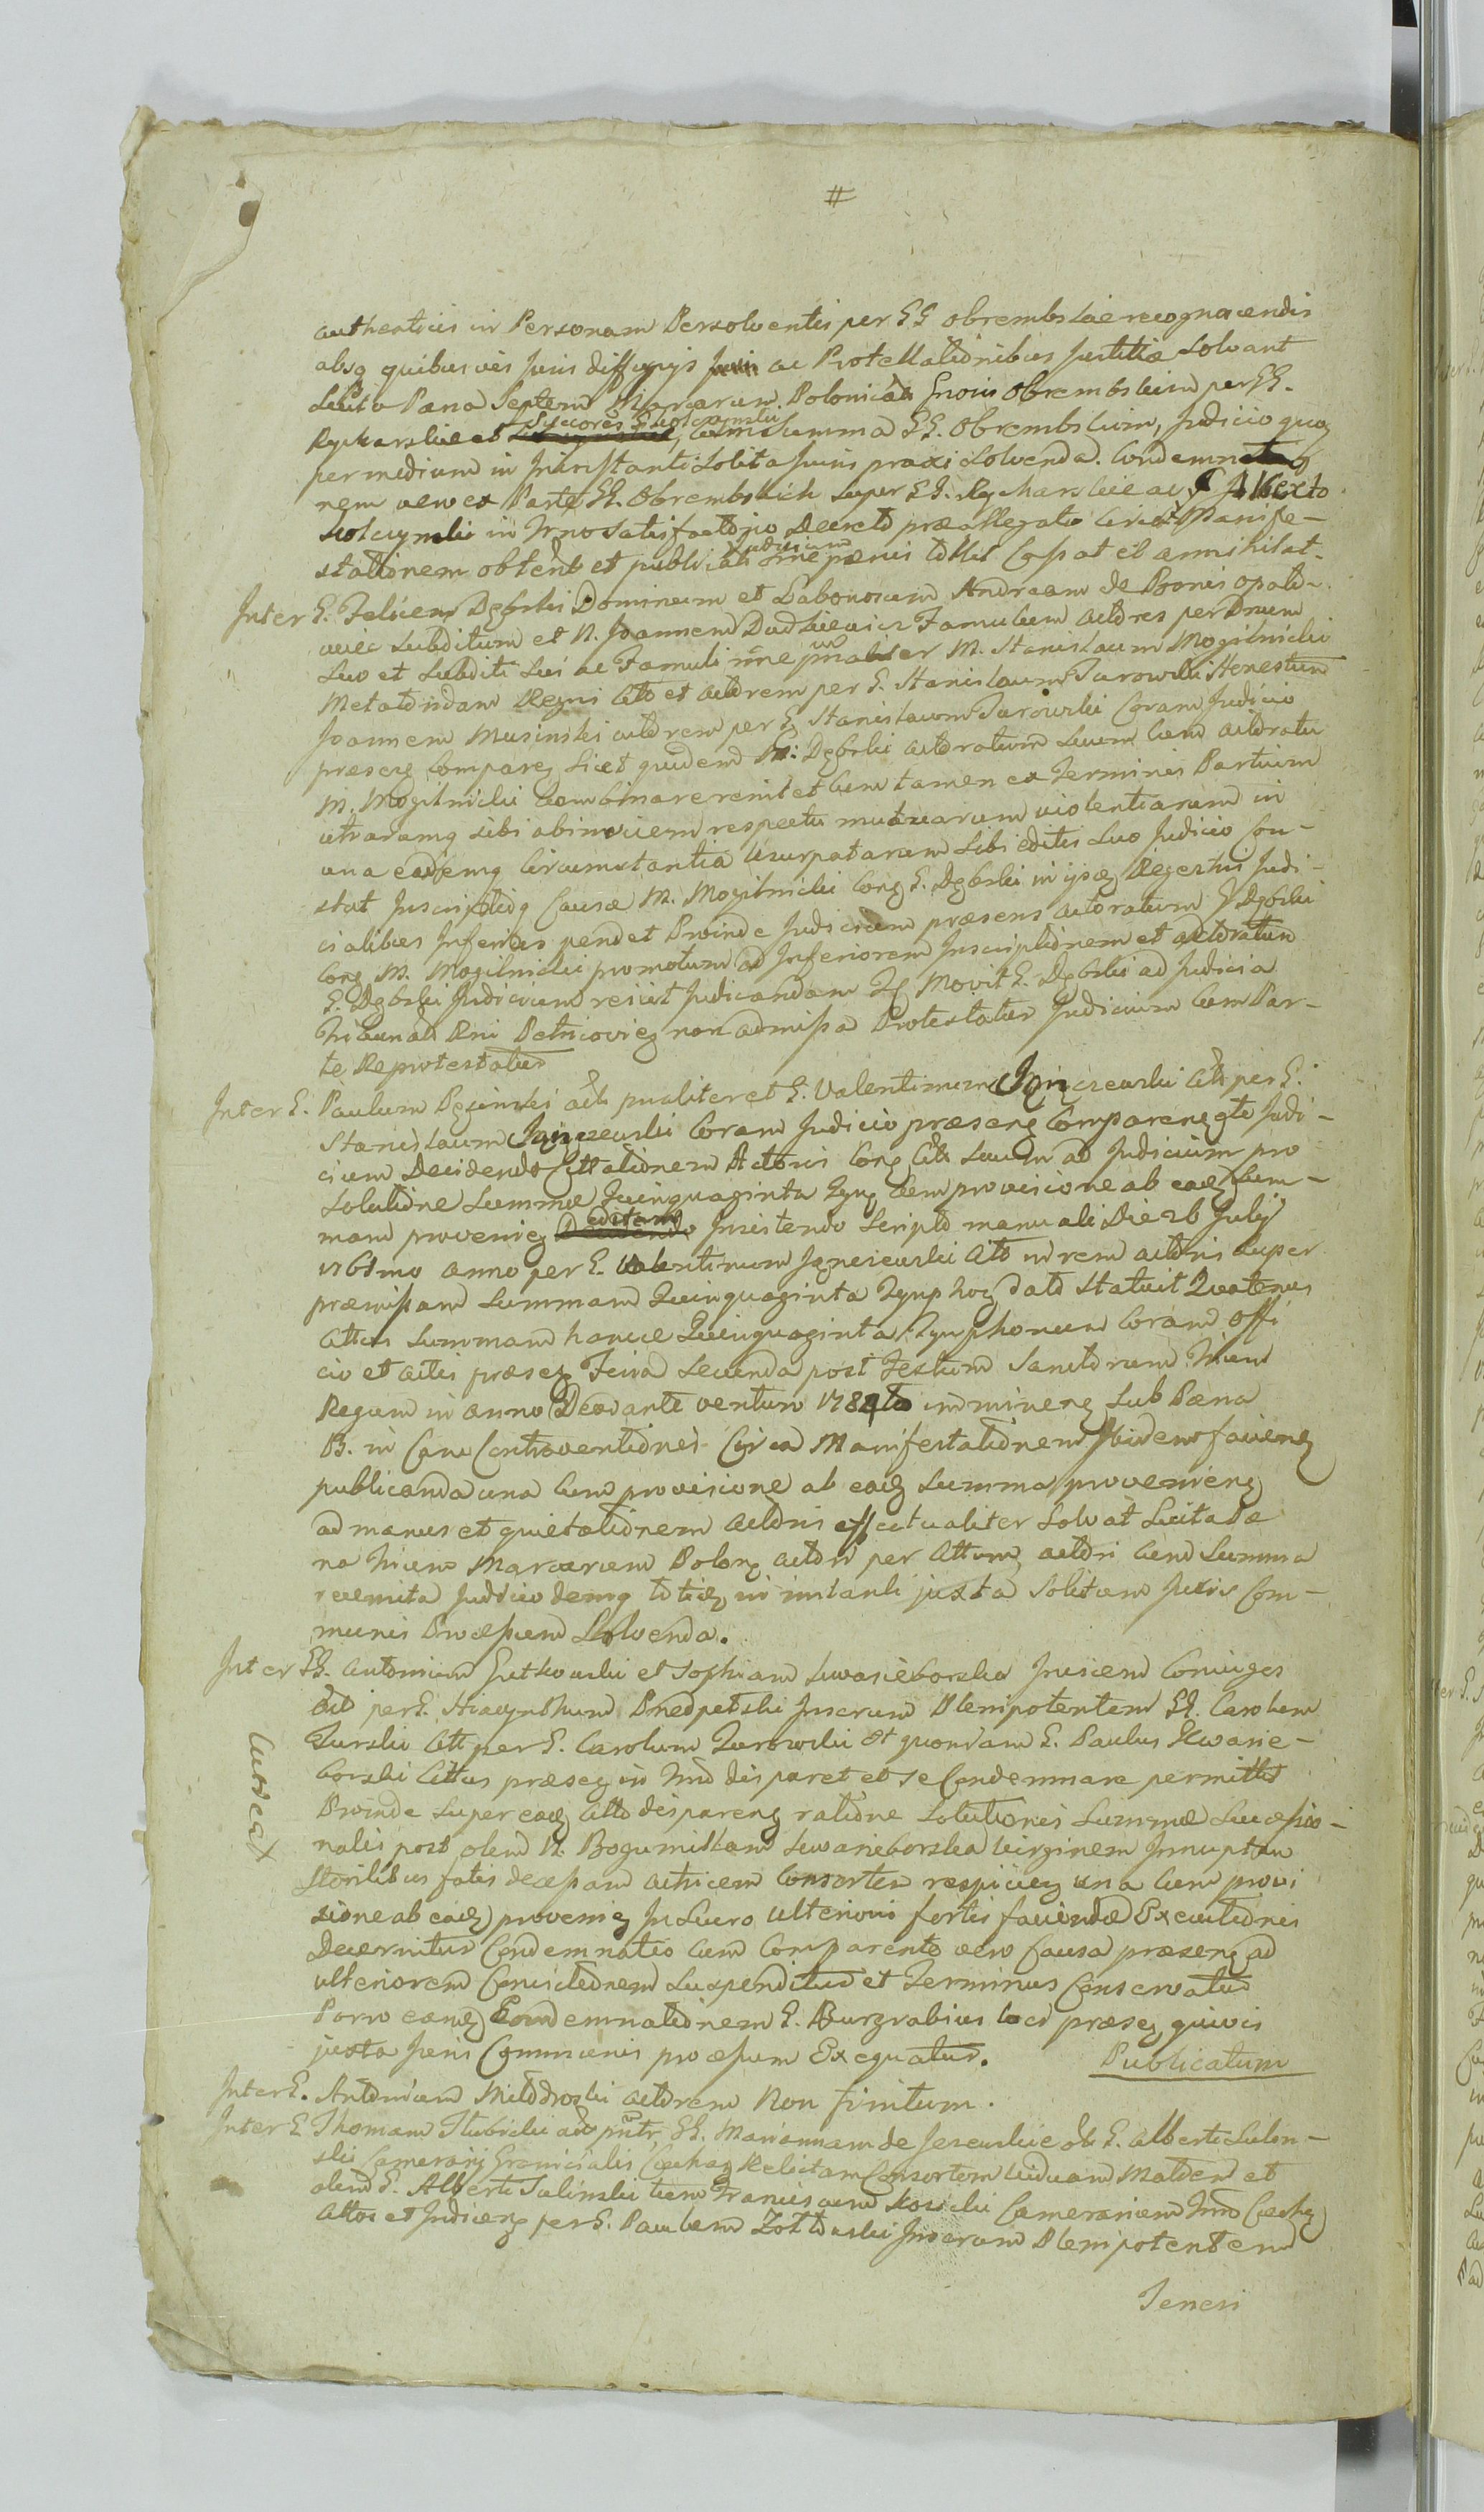 #
authenticis in Personam Persolventis per GG Obrembskie recognoscendis
absq quibusvis Juris diffugijs ac Protestationibus Justitia solvant
Lucita Pæna Septem Marcarum Polonical Grosis Obrembskim per GG.
Rycharskie et Succores Suscynski, cum Summa GG. Obrembskim, Judicio quoq
per medium in Instanti Solita Juris praxi Solvenda. Condemnatio
nem vero ex Parte GG. Obrembskich super GG. Rycharskie ac G Alberto
Suscynski in Tmno Satisfactorio Decreto præallegato circa Manife-
stationem obtent et publicat Judicium sine pænis tollit Cassat et annihilat.
Inter G. Felicem Dębski Dominum et Laboriosum Andream de Bonis Opato-
wiec Subditum et N. Joannem Dudkiewicz Famulum Actores per Dnum
Suo et Subditi Sui ac Famuli nne pnaliter M. Stanislaum Mogilnicki
Metatoridam Regni Citt et actorem per G. Stanislaum Turowski Honestum
Joannem Musinski actorem per G Stanislaum Turowski Coram Judicio
præsenq Compareq Licet quidem G: Dębski actoratum Suum cum actoratu
M. Mogilnicki Combinare renitet cum tamen ex Terminis Partium
utrarumq sibi abinvicem respectu mutuarum violentiarum in
una eademq Circumstantia usurpatarum Sibi editis Suo Judicio Con-
stat Inscriptioq Causæ M. Mogilnicki Conq G. Dębski in ijsdq Regestris Judi-
cialibus Inferius pendet Proinde Judicium præsens actoratum G Dębski
Conq M. Mogilnicki promotum ad Inferiorem Inscriptionem et actoratum
G. Dębski Judicium reiicit Judicandam Qq Movit G. Dębski ad Judicia
Tribunal Rni Petricovieq non admissa Protestatur Judicium cum Par-
te Reprotestatur
Inter G. Paulum Pęcinski act pnaliter et G. Valentinum Janczewski Citt per G.
Stanislaum Janczewski Coram Judicio præsenq Compareneqte Judi-
cium Decidendo Cittationem Actoris Conq Citt Suum ad Judicium pro
Solutione Summæ Quinquaginta Tynq cum provisione ab eadq Sum-
mam provenieq editam Insistendo Scripto manuali Die 26 July
1761mo anno per G. Valentinum Janczewski Citt in rem actoris super
præmissam Summam Quinquaginta Tynphoq dato Statuit Quatenus
Cittus Summam hancce Quinquaginta Tynphonum Coram Offi
cio et actis præseq Feria Secunda post Festum Sanctorum Trium
Regum in anno Deo dante venturo 1784to imminenq Sub Pæna
B. in Casu Contraventionis Circa Manifestationem Ibidem facienq
publicanda una cum provisione ab eadq Summa provenienq
ad manus et quietationem actoris effectualiter Solvat Lucita Pæ
na Trium Marcarum Polonq actori per Cittum actori cum Summa
recensita Judicio demq totieq in instanti juxta Solitum Juris Com-
munis Processum Solvenda.
Inter GG. Antonium Gutkowski et Sophiam Swasieborska Inicem Coniuges
Act per G. Hiacynthum Przedpelski Juscrum Plenipotentem GG. Carolum
Turski Citt per G. Carolum Turowski et quondam G. Paulus Swasie-
borski Cittus præseq in Tmno disparet et se Condemnare permittit
Proinde Super eadq Citto dispareng ratione Solutionis Summæ Successio-
nalis post olem N. Bogumillam Swasieborska Virginem Innuptam
Sterilibus fatis decessam actricem Consortem respicieq una cum provi
sione ab eadq proveniq In Lucro Ulterioris fortis faciendæ Executionis
Decernitur Condemnatio cum Comparente vero Causa præsenq ad
ulteriorem Convictionem Suspenditur et Terminus Conservatur
Porro eandq Condemnationem G. Burgrabius loci præseq quivis
juxta Juris Communis processum Exequatur. Publicatum
Luricat
Inter G. Antonium Milodroski actorem Non finitum.
Inter G Thomam Slubicki act pntr GG. Mariannam de Jezewskie ol G. Alberti Sulin-
ski Camerarij Granicialis Cechaq Relictam Consortem Viduam Matrem et
olem G. Alberti Sulinski tum Franciscum Kosicki Camerarium Tmno Ciecheq
Cittos et Judicenq per G. Paulum Zoltowski Juscrum Plenipotentem
Teneri